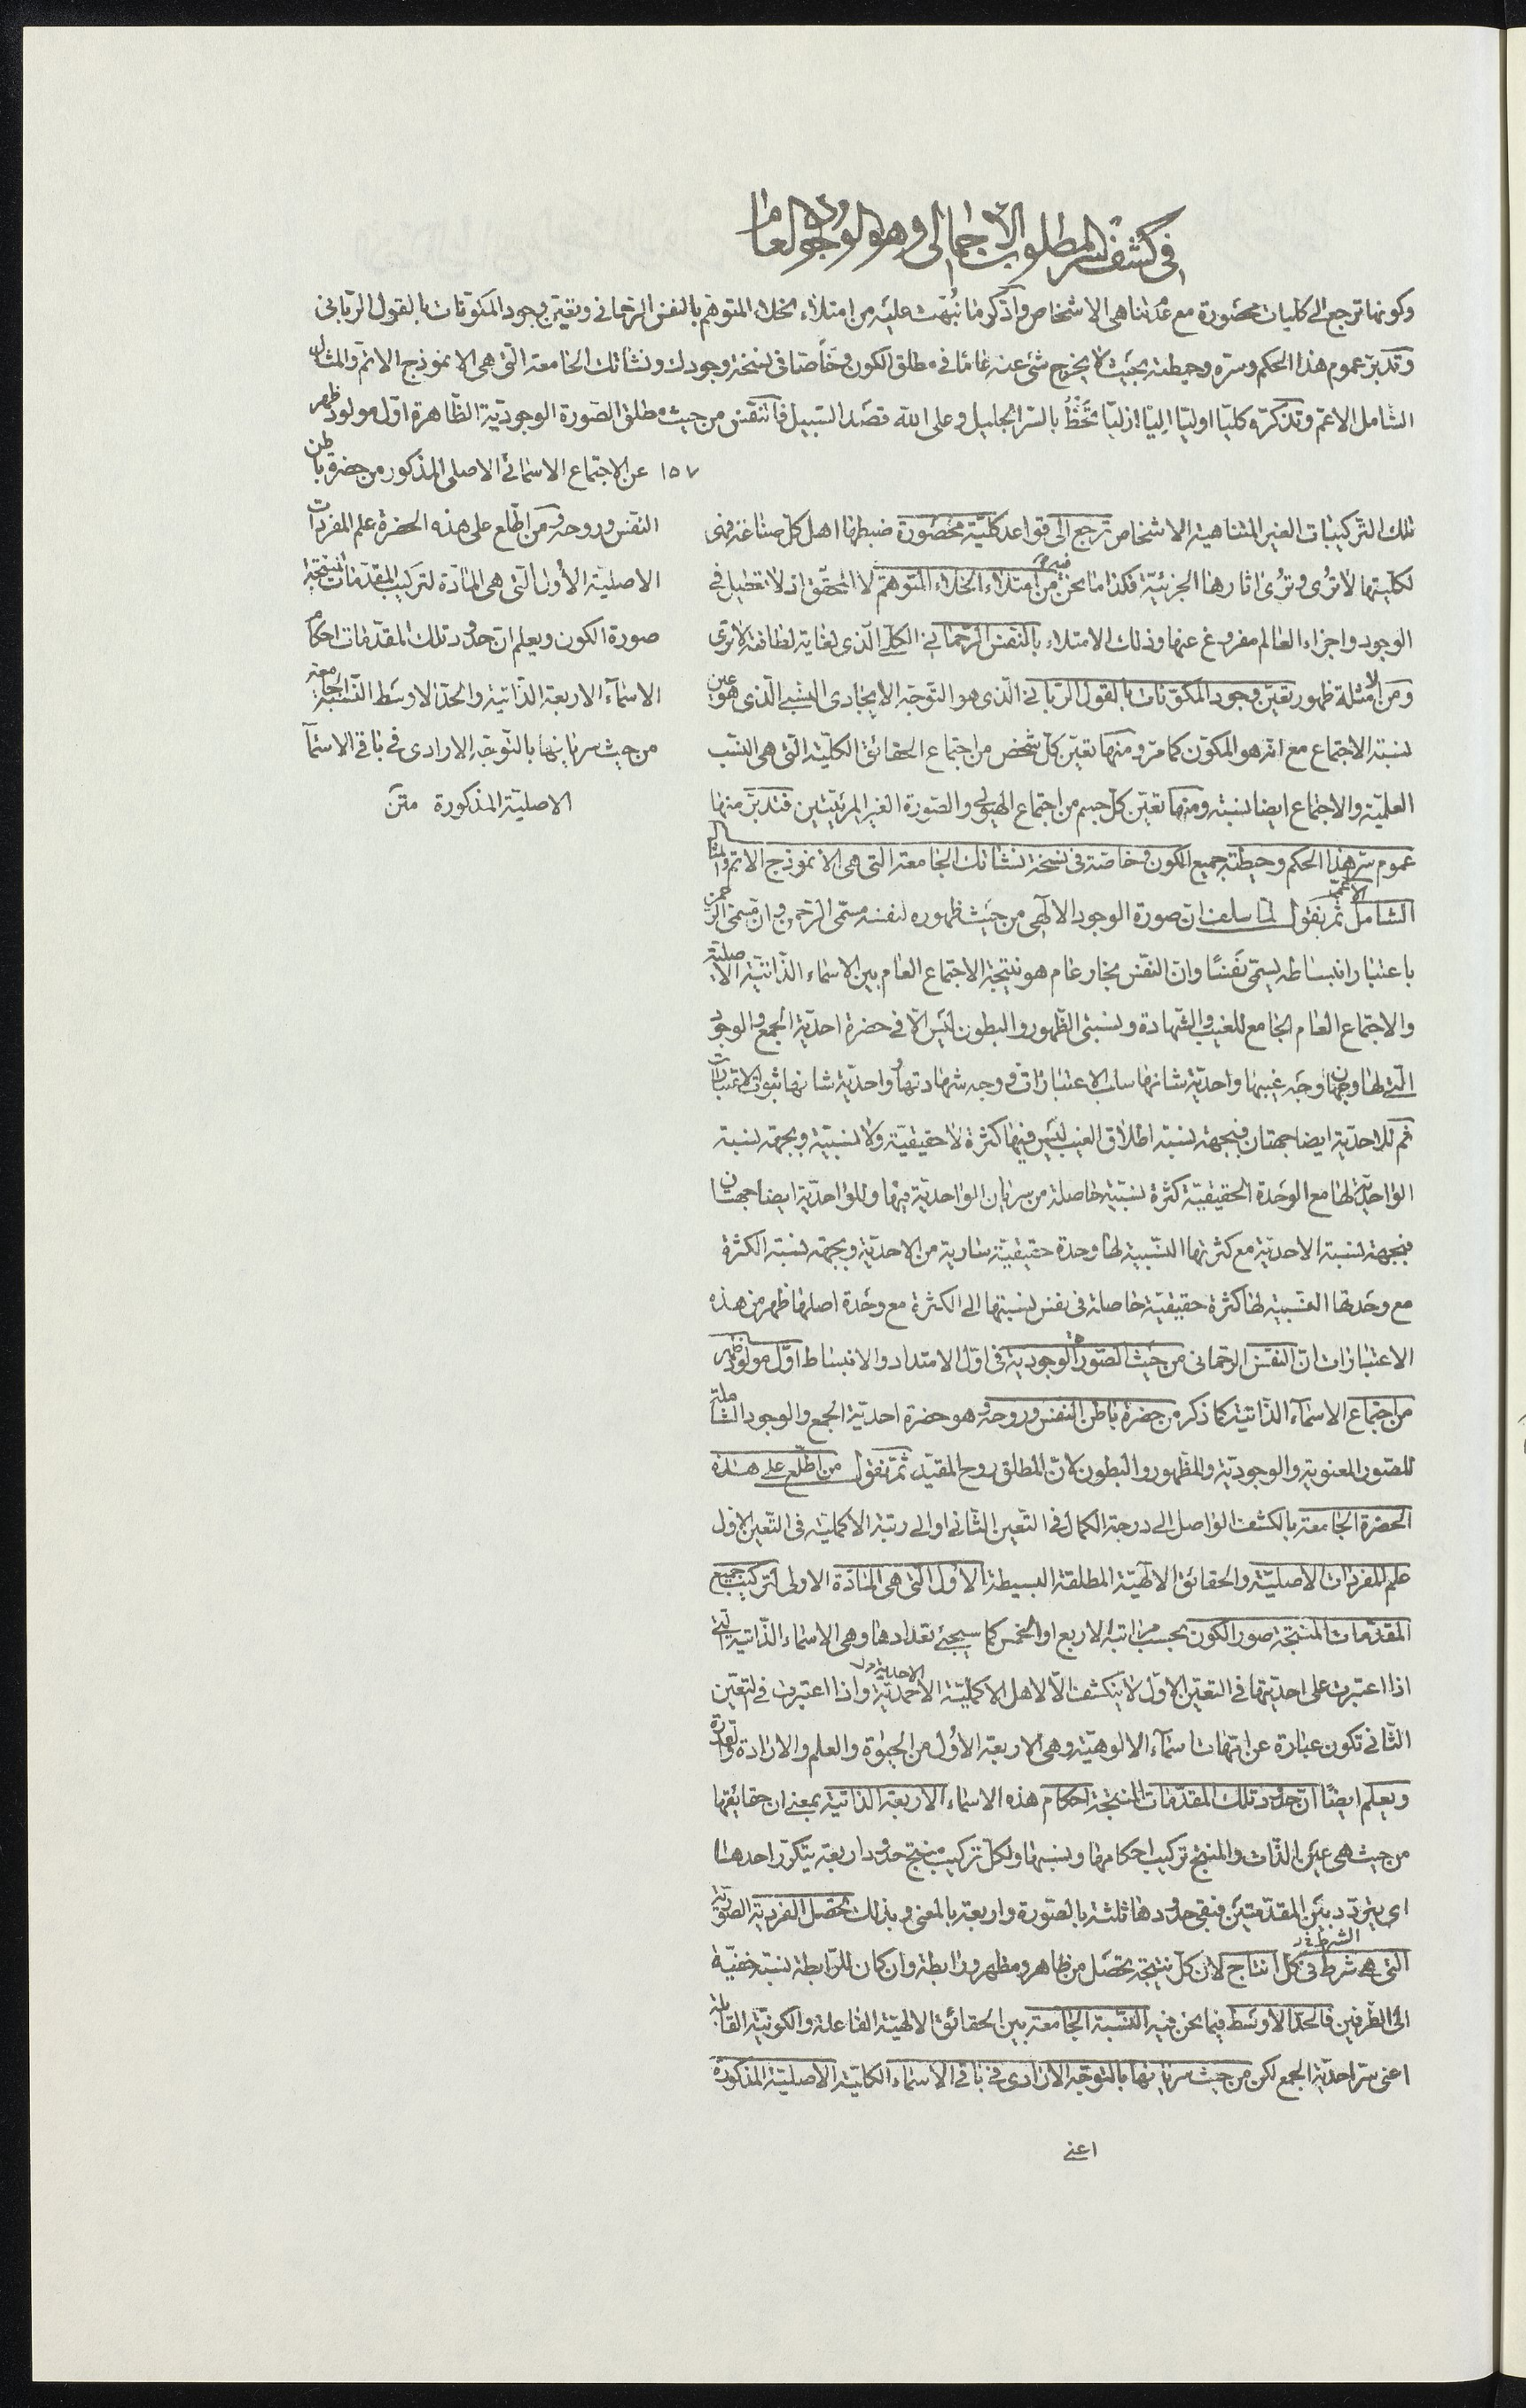 في كشف سر المطلوب الاجمالى وهو الوجود العام
وكونها ترجع الى كليات محصورة مع عدم تناهى الاشخاص واذكر ما نبهت عليه من امتلاء الخلاء المتوهم بالنفس الرحمانى وتعين وجود المكونات بالقول الربانى
وتدبر عموم هذا الحكم وسره وحيطته بحيث لا يخرج شئ عنه عاما فى مطلق الكون وخاصا فى نسخة وجودك ونشاتك الجامعة التى هى الانموذج الاتم والمثال
الشامل الاعم وتذكره كليا اوليا اليا ازليا تحظ بالسر الجليل وعلى الله قصد السبيل فالنفس من حيث مطلق الصورة الوجودية الظاهرة اول مولود ظهر
١٥٧ عن الاجتماع الاسمائى الاصلى المذكور من حضرة باطن
النفس وروحه ومن اطلع على هذه الحضرة علم المفردات
الاصلية الاول التى هى المادة لتركيب المقدمات المنتجة
صورة الكون ويعلم ان حدود تلك المقدمات احكام
الاسماء الاربعة الذاتية والحد الاوسط النسبة الجامعة
من حيث سريانها بالتوجه الارادى فى باقى الاسماء
الاصلية المذكورة متن
تلك التركيبات الغير المتناهية الاشخاص ترجع الى قواعد كلية محصورة ضبطها اهل كل صناعة فهى
لكليتها لا ترى وترى اثارها الجزئية فكذا ما نحن فيه من امتلاء الخلاء المتوهم لا المحقق اذ لا تعطيل فى
الوجود واجزاء العالم مفروغ عنها وذلك الامتلاء بالنفس الرحمانى الكلى الذى لغاية لطافته لا ترى
ومن الامثلة ظهور تعين وجود المكونات بالقول الربانى الذى هو التوجه الايجادى النسبى الذى هو عين
نسبة الاجتماع مع انه هو المكون كما مر ومنها تعين كل شخص من اجتماع الحقائق الكلية التى هى النسب
العلمية والاجتماع ايضا نسبة ومنها تعين كل جسم من اجتماع الهيولى والصورة الغير المرئيتين فتدبر منها
عموم سر هذا الحكم وحيطته جميع الكون وخاصة فى نسخة نشاتك الجامعة التى هى الانموذج الاتم والمثال
الشامل الاعم ثم نقول لما سلف ان صورة الوجود الالهى من حيث ظهوره لنفسه مسمى الرحمن وان مسمى الرحمن
باعتبار انبساطه يسمى نفسا وان النفس بخار عام هو نتيجة الاجتماع العام بين الاسماء الذاتية الاصلية
والاجتماع العام الجامع للغيب والشهادة ونسبتى الظهور والبطون ليس الا فى حضرة احدية الجمع والوجود
التى لها وجهان وجه غيبها واحدية شانها سلب الاعتبارات ووجه شهادتها وواحدية شانها ثبوت الاعتبارات
ثم للاحدية ايضا جهتان فبجهة نسبة اطلاق الغيب ليس فيها كثرة لا حقيقية ولا نسبية وبجهة نسبة
الواحدية لها مع الوحدة الحقيقية كثرة نسبية حاصلة من سريان الواحدية فيها وللواحدية ايضا جهتان
فبجهة نسبة الاحدية مع كثرتها النسبية لها وحدة حقيقية سارية من الاحدية وبجهة نسبة الكثرة
مع وحدتها النسبية لها كثرة حقيقية حاصلة فى نفس نسبتها الى الكثرة مع وحدة اصلها ظهر من هذه
الاعتبارات ان النفس الرحمانى من حيث الصورة الوجودية فى اول الامتداد والانبساط اول مولود ظهر
من اجتماع الاسماء الذاتية كما ذكر من حضرة باطن النفس وروحه وهو حضرة احدية الجمع والوجود الشاملة
للصور المعنوية والوجودية والظهور والبطون لان المطلق روح المقيد ثم نقول من اطلع على هذه
الحضرة الجامعة بالكشف الواصل الى درجة الكمال فى التعين الثانى او الى رتبة الاكملية فى التعين الاول
علم المفردات الاصلية والحقائق الالهية المطلقة البسيطة الاول التى هى المادة الاولى لتركيب جميع
المقدمات المنتجة صور الكون بحسب مراتبه الاربع او الخمس كما سيجئ تعدادها وهى الاسماء الذاتية التى
اذا اعتبرت على احديتها فى التعين الاول لا ينكشف الا لاهل الاكملية الاحمدية واذا اعتبرت فى التعين
الثانى تكون عبارة عن امهات اسماء الالوهية وهى الاربعة الاول من الحيوة والعلم والارادة والقدرة
ويعلم ايضا ان حدود تلك المقدمات المنتجة احكام هذه الاسماء الاربعة الذاتية بمعنى ان حقايقها
من حيث هى عين الذات والمنتج تركيب احكامها ونسبها ولكل تركيب منتج حدود اربعة يتكرر احدها
اى يتردد بين المقدمتين فتبقى حدودها ثلثة بالصورة واربعة بالمعنى وبذلك تحصل الفردية الصورية
التى هى شرط فى كل انتاج لان كل نتيجة تحصل من ظاهر ومظهر ورابطة وان كان للرابطة نسبة خفية
الى الطرفين فالحد الاوسط فيما نحن فيه النسبة الجامعة بين الحقائق الالهية الفاعلة والكونية القابلة
اعنى سر احدية الجمع لكن من حيث سريانها بالتوجه الارادى فى باقى الاسماء الكلية الاصلية المذكورة
اعنى